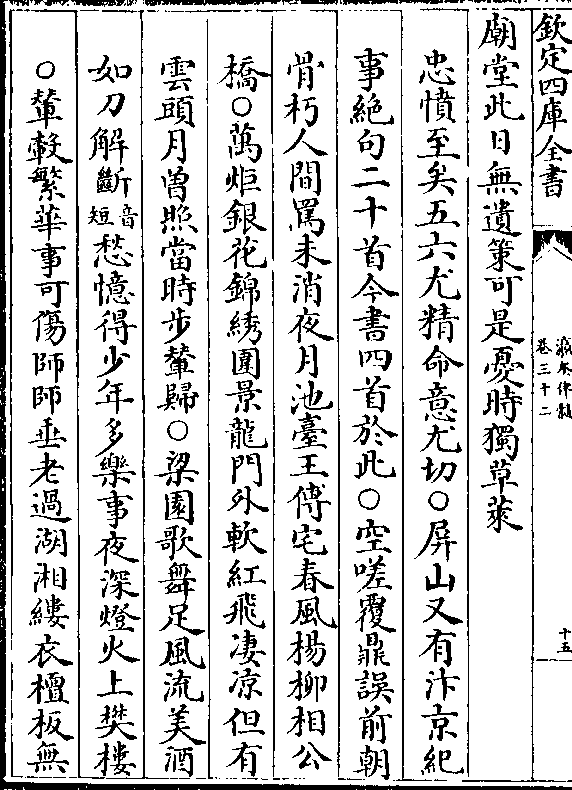 欽定四庫全書
瀛奎律髓
卷三十二
十五
廟堂此日無遺策可是憂時獨草萊
忠憤至矣五六尤精命意尤切○屏山又有汴京紀
事絶句二十首今書四首於此○空嗟覆鼎誤前朝
骨朽人間罵未消夜月池臺王傅宅春風楊柳相公
橋○萬炬銀花錦綉圍景龍門外軟紅飛凄凉但有
雲頭月曽照當時步輦歸○梁園歌舞足風流美酒
如刀解斷音短愁憶得少年多樂事夜深燈火上樊樓
○輦轂繁華事可傷師師垂老過湖湘縷衣檀板無